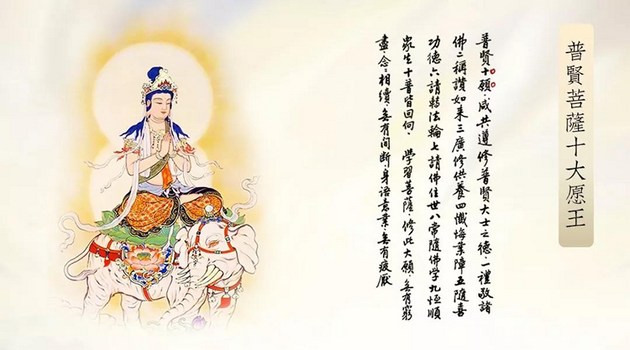 普賢菩薩十大愿王
普賢十願.咸共遵修普賢大士之德一禮敬諸
佛二稱讚如来三廣修供養四懺悔業障五隨喜
功德六請转法輪七請佛住世八常隨佛学九恒順
衆生十普皆回向.學習菩薩.修此大願.無有窮
盡.念〻相續.無有间断.身语意業.無有疲厭